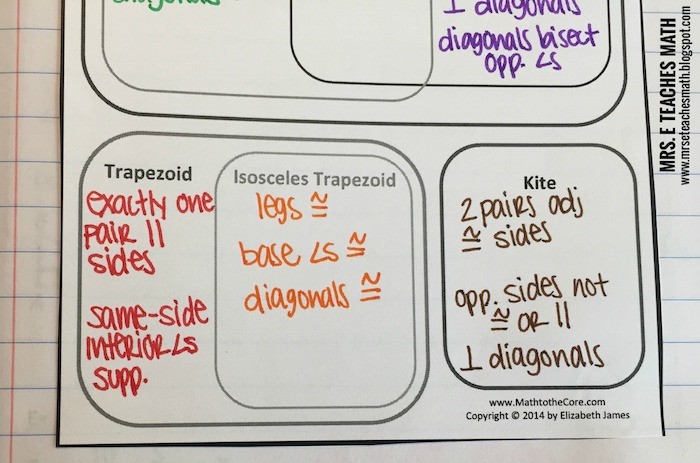 diagonals
⊥ diagonals
diagonals bisect
opp. ∠s
MRS. E TEACHES MATH
www.mrseteachesmath.blogspot.com
Trapezoid
exactly one
pair ||
sides
same-side
interior ∠s
supp.
Isosceles Trapezoid
legs ≅
base ∠s ≅
diagonals ≅
Kite
2 pairs adj
≅ sides
opp. sides not
≅ or ||
⊥ diagonals
www.MathtotheCore.com
Copyright © 2014 by Elizabeth James